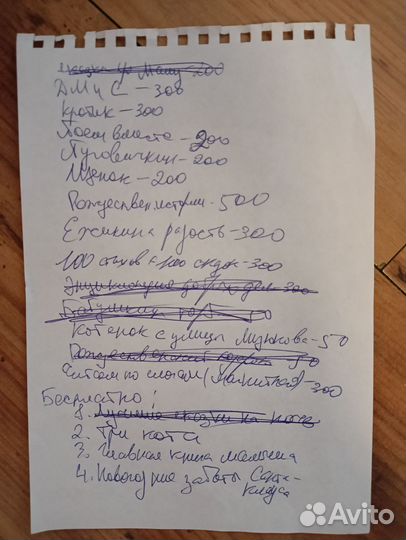 сказка про Машу - 200
ДМиС - 300
Кротик - 300
Поем вместе - 200
Пуговичкин - 200
Щенок - 200
Рождествен. истории - 500
Ежикина радость - 300
100 стихов и 100 сказок - 300
Энциклопедия для дев 300
Бабушкин
Котенок с улицы Лизюкова - 50
Рождественский - 50
Читаем по слогам (Магнитная) - 300
Бесплатно:
1. Лучшие сказки на ночь
2. Три кота
3. Главная книга малыша
4. Новогодние заботы Санта-
Клауса
Avito